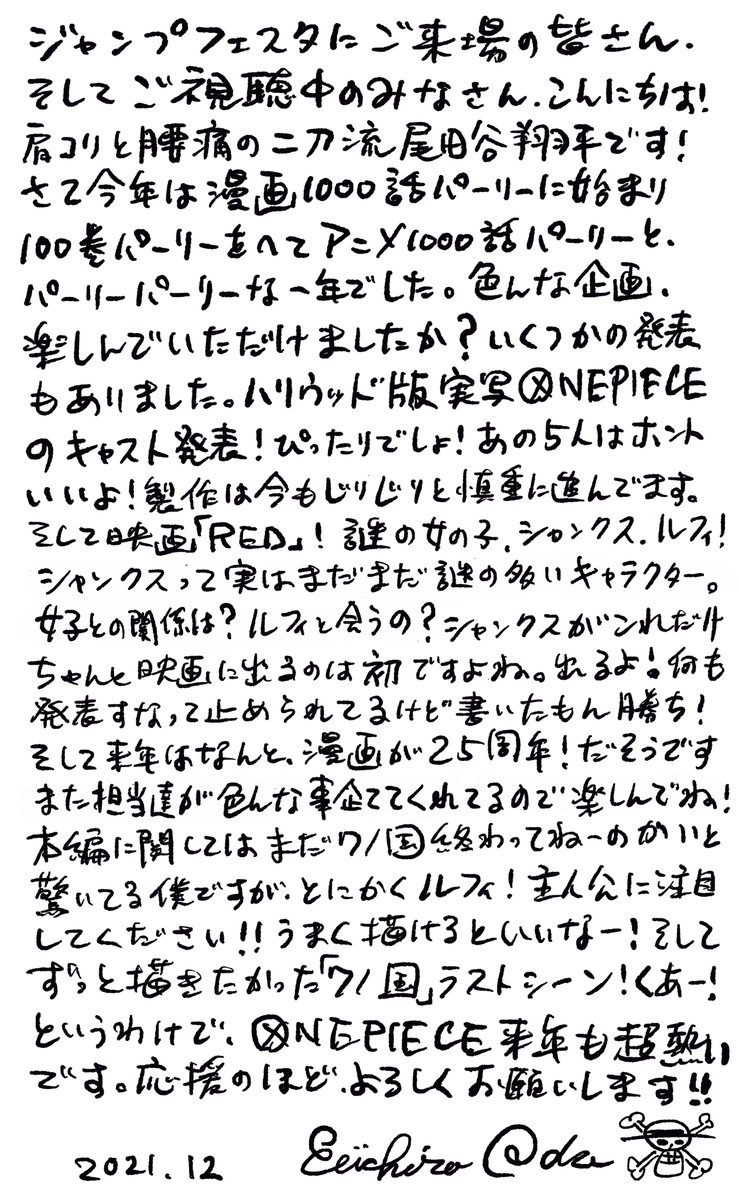 ジャンプフェスタにご来場の皆さん.
そしてご視聴中のみなさん.こんにちは!
肩コリと腰痛の二刀流尾田谷翔平です!
さて今年は漫画1000話パーリーに始まり
100巻パーリーをへてアニメ1000話パーリーと、
パーリーパーリーな一年でした。色んな企画、
楽しんでいただけましたか?いくつかの発表
もありました。ハリウッド版実写ONEPIECE
のキャスト発表!ぴったりでしょ!あの5人はホント
いいよ!製作は今もじりじりと慎重に進んでます。
そして映画「RED」!謎の女の子、シャンクス、ルフィ!
シャンクスって実はまだまだ謎の多いキャラクター。
女子との関係は?ルフィと会うの?シャンクスがこれだけ
ちゃんと映画に出るのは初ですよね。出るよ!何も
発表すなって止められてるけど書いたもん勝ち!
そして来年はなんと、漫画が25周年!だそうです
また担当達が色んな事企ててくれてるので楽しんでね!
本編に関してはまだワノ国終わってねーのかいと
驚いてる僕ですが、とにかくルフィ!主人公に注目
してください!!うまく描けるといいなー!そして
ずっと描きたかった「ワノ国」ラストシーン!くあー!
というわけで、ONEPIECE来年も超熱い
です。応援のほど、よろしくお願いします!!
2021.12 Eiichiro Oda